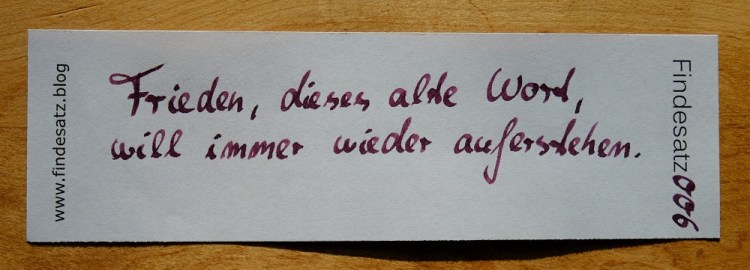 www.findesatz.blog
Frieden, dieses alte Wort,
will immer wieder auferstehen.
Findesatz 006